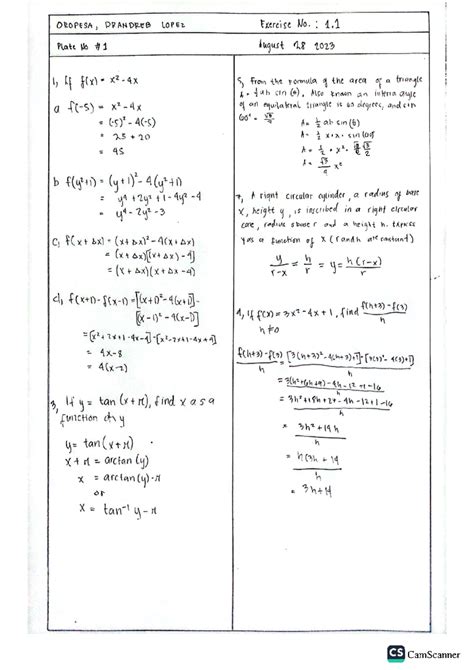 OROPESA, DRANDREB LOPEZ
Exercise No. : 1.1
Plate No #1
August 28 2023
1, If f(x) = x² - 4x
a f(-5) = x² - 4x
= (-5)² - 4(-5)
= 25 + 20
= 45
b f(y²+1) = (y+1)² - 4(y²+1)
= y⁴ + 2y² + 1 - 4y² - 4
= y⁴ - 2y² - 3
c, f(x + Δx) = (x + Δx)² - 4(x + Δx)
= (x + Δx)(x + Δx) - 4(x + Δx)
= (x + Δx)(x + Δx - 4)
d, f(x+1) - f(x-1) = [(x+1)² - 4(x+1)] -
[(x-1)² - 4(x-1)]
= [x² + 2x + 1 - 4x - 4] - [x² - 2x + 1 - 4x + 4]
= 4x - 8
= 4(x - 2)
3, If y = tan (x + π), find x as a
function of y
y = tan (x + π)
x + π = arctan (y)
x = arctan (y) - π
or
x = tan⁻¹ y - π
5, From the formula of the area of a triangle
A = ½ ab sin (θ). Also known an interior angle
of an equilateral triangle is 60 degrees, and sin
60° = √3/2
A = ½ ab sin (θ)
A = ½ x · x · sin (60°)
A = ½ · x² · √3/2
A = √3/4 x²
A right circular cylinder, a radius of base
x, height y, is inscribed in a right circular
cone, radius of base r and a height h. express
y as a function of x (r and h are constant)
y/r-x = h/r = y = h(r-x)/r
4, If f(x) = 3x² - 4x + 1, find f(h+3) - f(3)/h
h ≠ 0
f(h+3) - f(3)/h = [3(h+3)² - 4(h+3) + 1] - [3(3)² - 4(3) + 1]/h
= 3(h² + 6h + 9) - 4h - 12 + 1 - 16/h
= 3h² + 18h + 27 - 4h - 12 + 1 - 16/h
= 3h² + 14h/h
= h(3h + 14/h
= 3h + 14
CS CamScanner